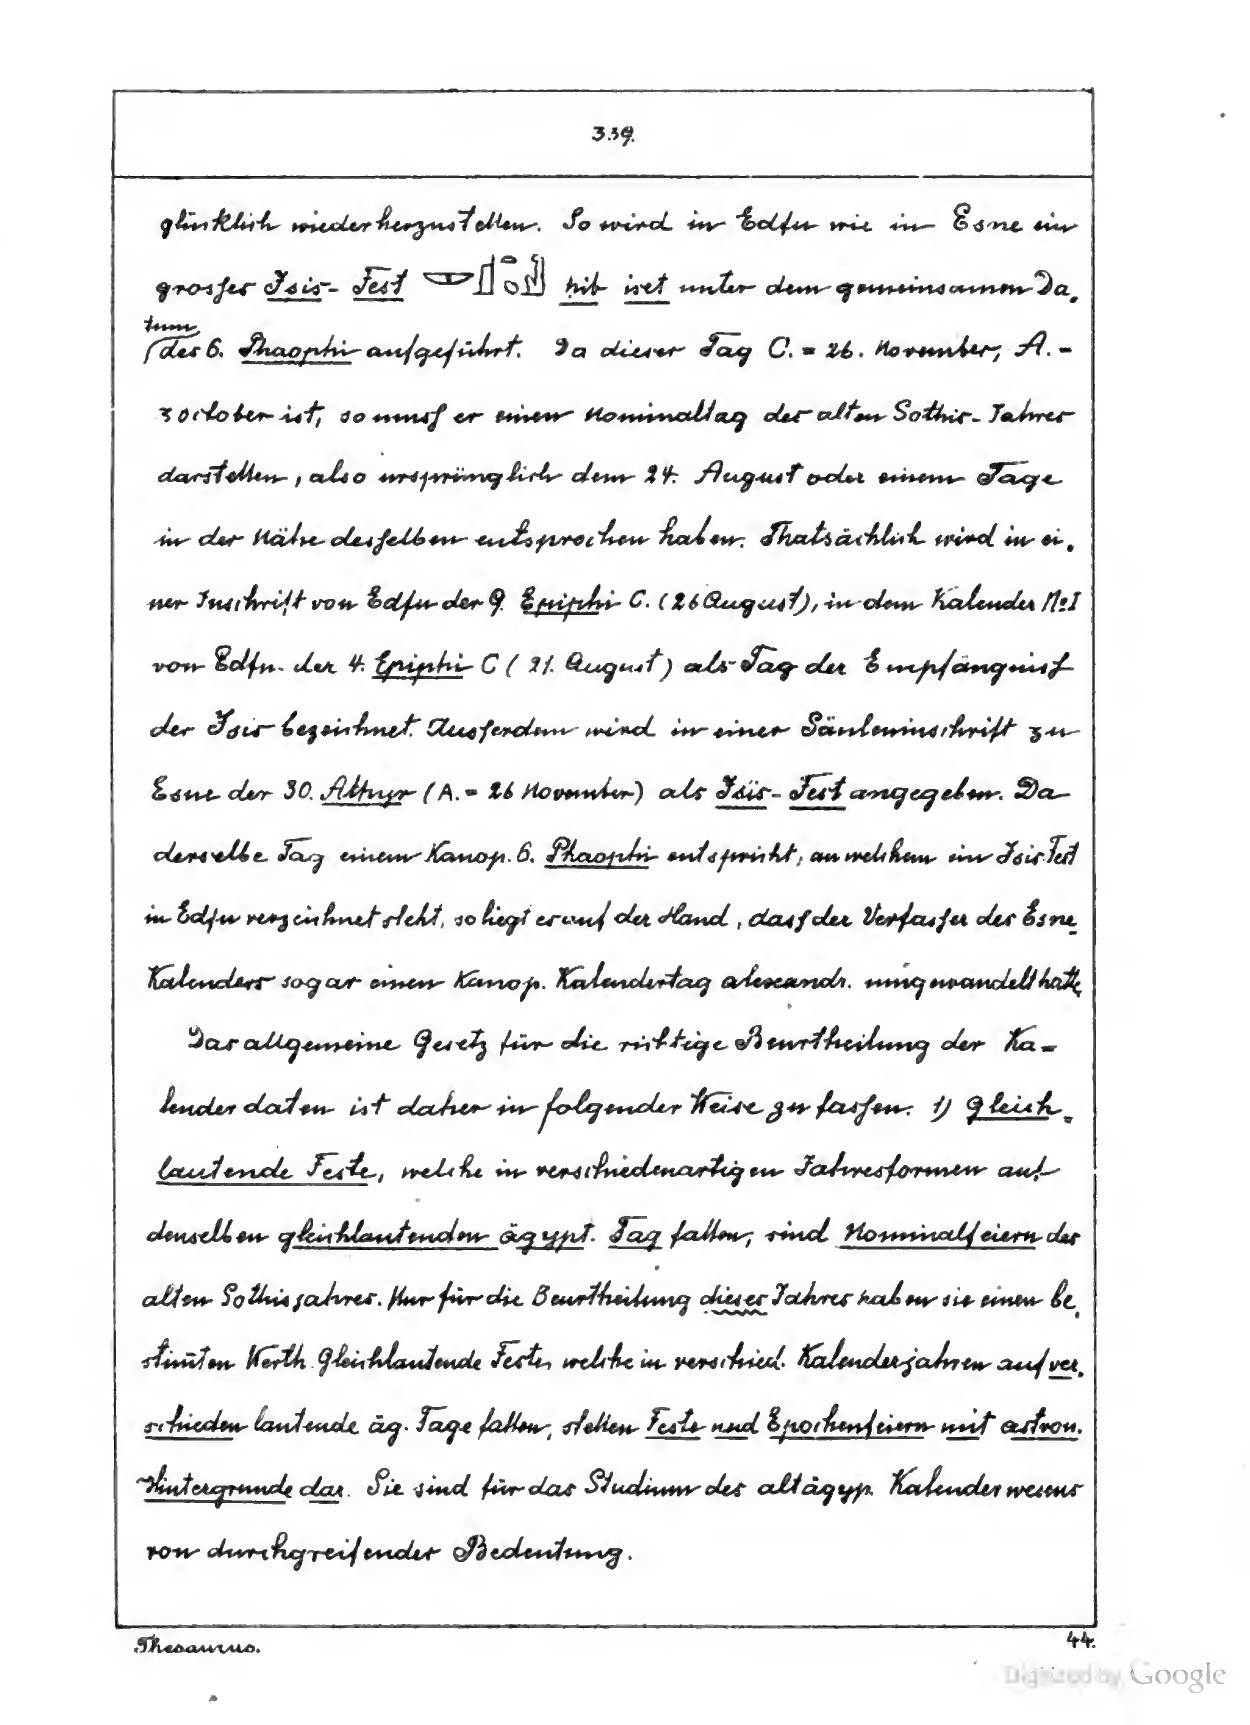 339.
glücklich wiederherzustellen. So wird in Edfu wie in Esne ein
grosses Isis-Fest hib iset unter dem gemeinsamen Da-
tum
des 6. Phaophi aufgeführt. Da dieser Tag C. = 26. November, A. =
3 October ist, so muss er einen Nominaltag des alten Sothis-Jahres
darstellen, also ursprünglich dem 24. August oder einem Tage
in der Nähe desselben entsprochen haben. Thatsächlich wird in ei-
ner Inschrift von Edfu der 9. Epiphi C. (26 August), in dem Kalender No I
von Edfu der 4. Epiphi C (21. August) als Tag der Empfängniss
der Isis bezeichnet. Ausserdem wird in einer Säuleninschrift zu
Esne der 30. Athyr (A. = 26 November) als Isis-Fest angegeben. Da
derselbe Tag einem Kanop. 6. Phaophi entspricht, an welchem ein Isis Fest
in Edfu verzeichnet steht, so liegt es auf der Hand, dass der Verfasser des Esne
Kalenders sogar einen Kanop. Kalendertag alexandr. umgewandelt hatte.
Das allgemeine Gesetz für die richtige Beurtheilung der Ka-
lenderdaten ist daher in folgender Weise zu fassen. 1) Gleich-
lautende Feste, welche in verschiedenartigen Jahresformen auf
denselben gleichlautenden ägypt. Tag fallen, sind Nominalfeiern des
alten Sothisjahres. Nur für die Beurtheilung dieses Jahres haben sie einen be-
stim̄ten Werth. Gleichlautende Feste, welche in verschied. Kalenderjahren auf ver-
schieden lautende äg. Tage fallen, stellen Feste und Epochenfeiern mit astron.
Hintergrunde dar. Sie sind für das Studium des altägyp. Kalenderwesens
von durchgreifender Bedeutung.
Thesaurus.
44.
Digitized by Google